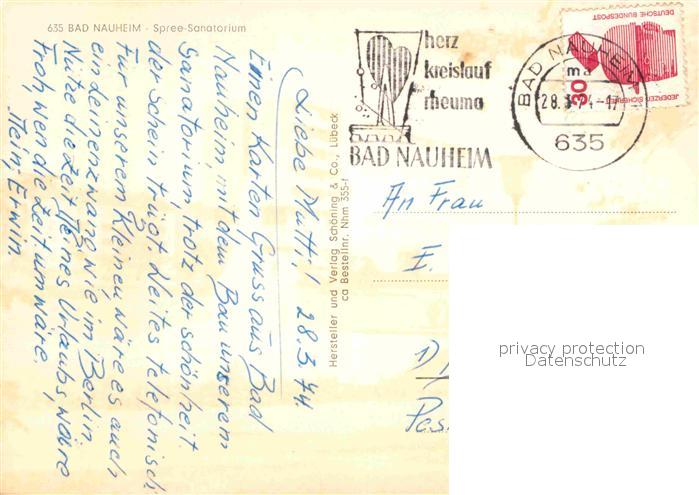 635 BAD NAUHEIM - Spree-Sanatorium
Liebe Mutti! 28.3.74
Einen Karten Gruss aus Bad
Nauheim mit dem Bau unserem
Sanatorium trotz der schönheit
der schein trügt. Weites telefonisch
Für unserem Kleinen wäre es auch
ein Leinenzwang wie im Berlin.
Nütze die Zeit Deines Urlaubs, wäre
Froh, wen die Zeit um wäre.
Dein, Erwin.
Hersteller und Verlag Schöning & Co., Lübeck
ca Bestellnr. Nhm 355-f
herz
kreislauf
rheuma
BAD NAUHEIM
BAD NAUHEIM
ma
28.3.74-17
635
30
DEUTSCHE BUNDESPOST
JEDERZEIT SICHERHEIT
An Frau
E.
privacy protection
Datenschutz